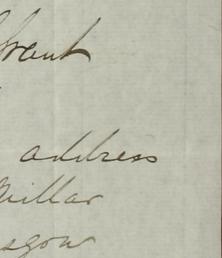 Grant
address
Millar
asgow